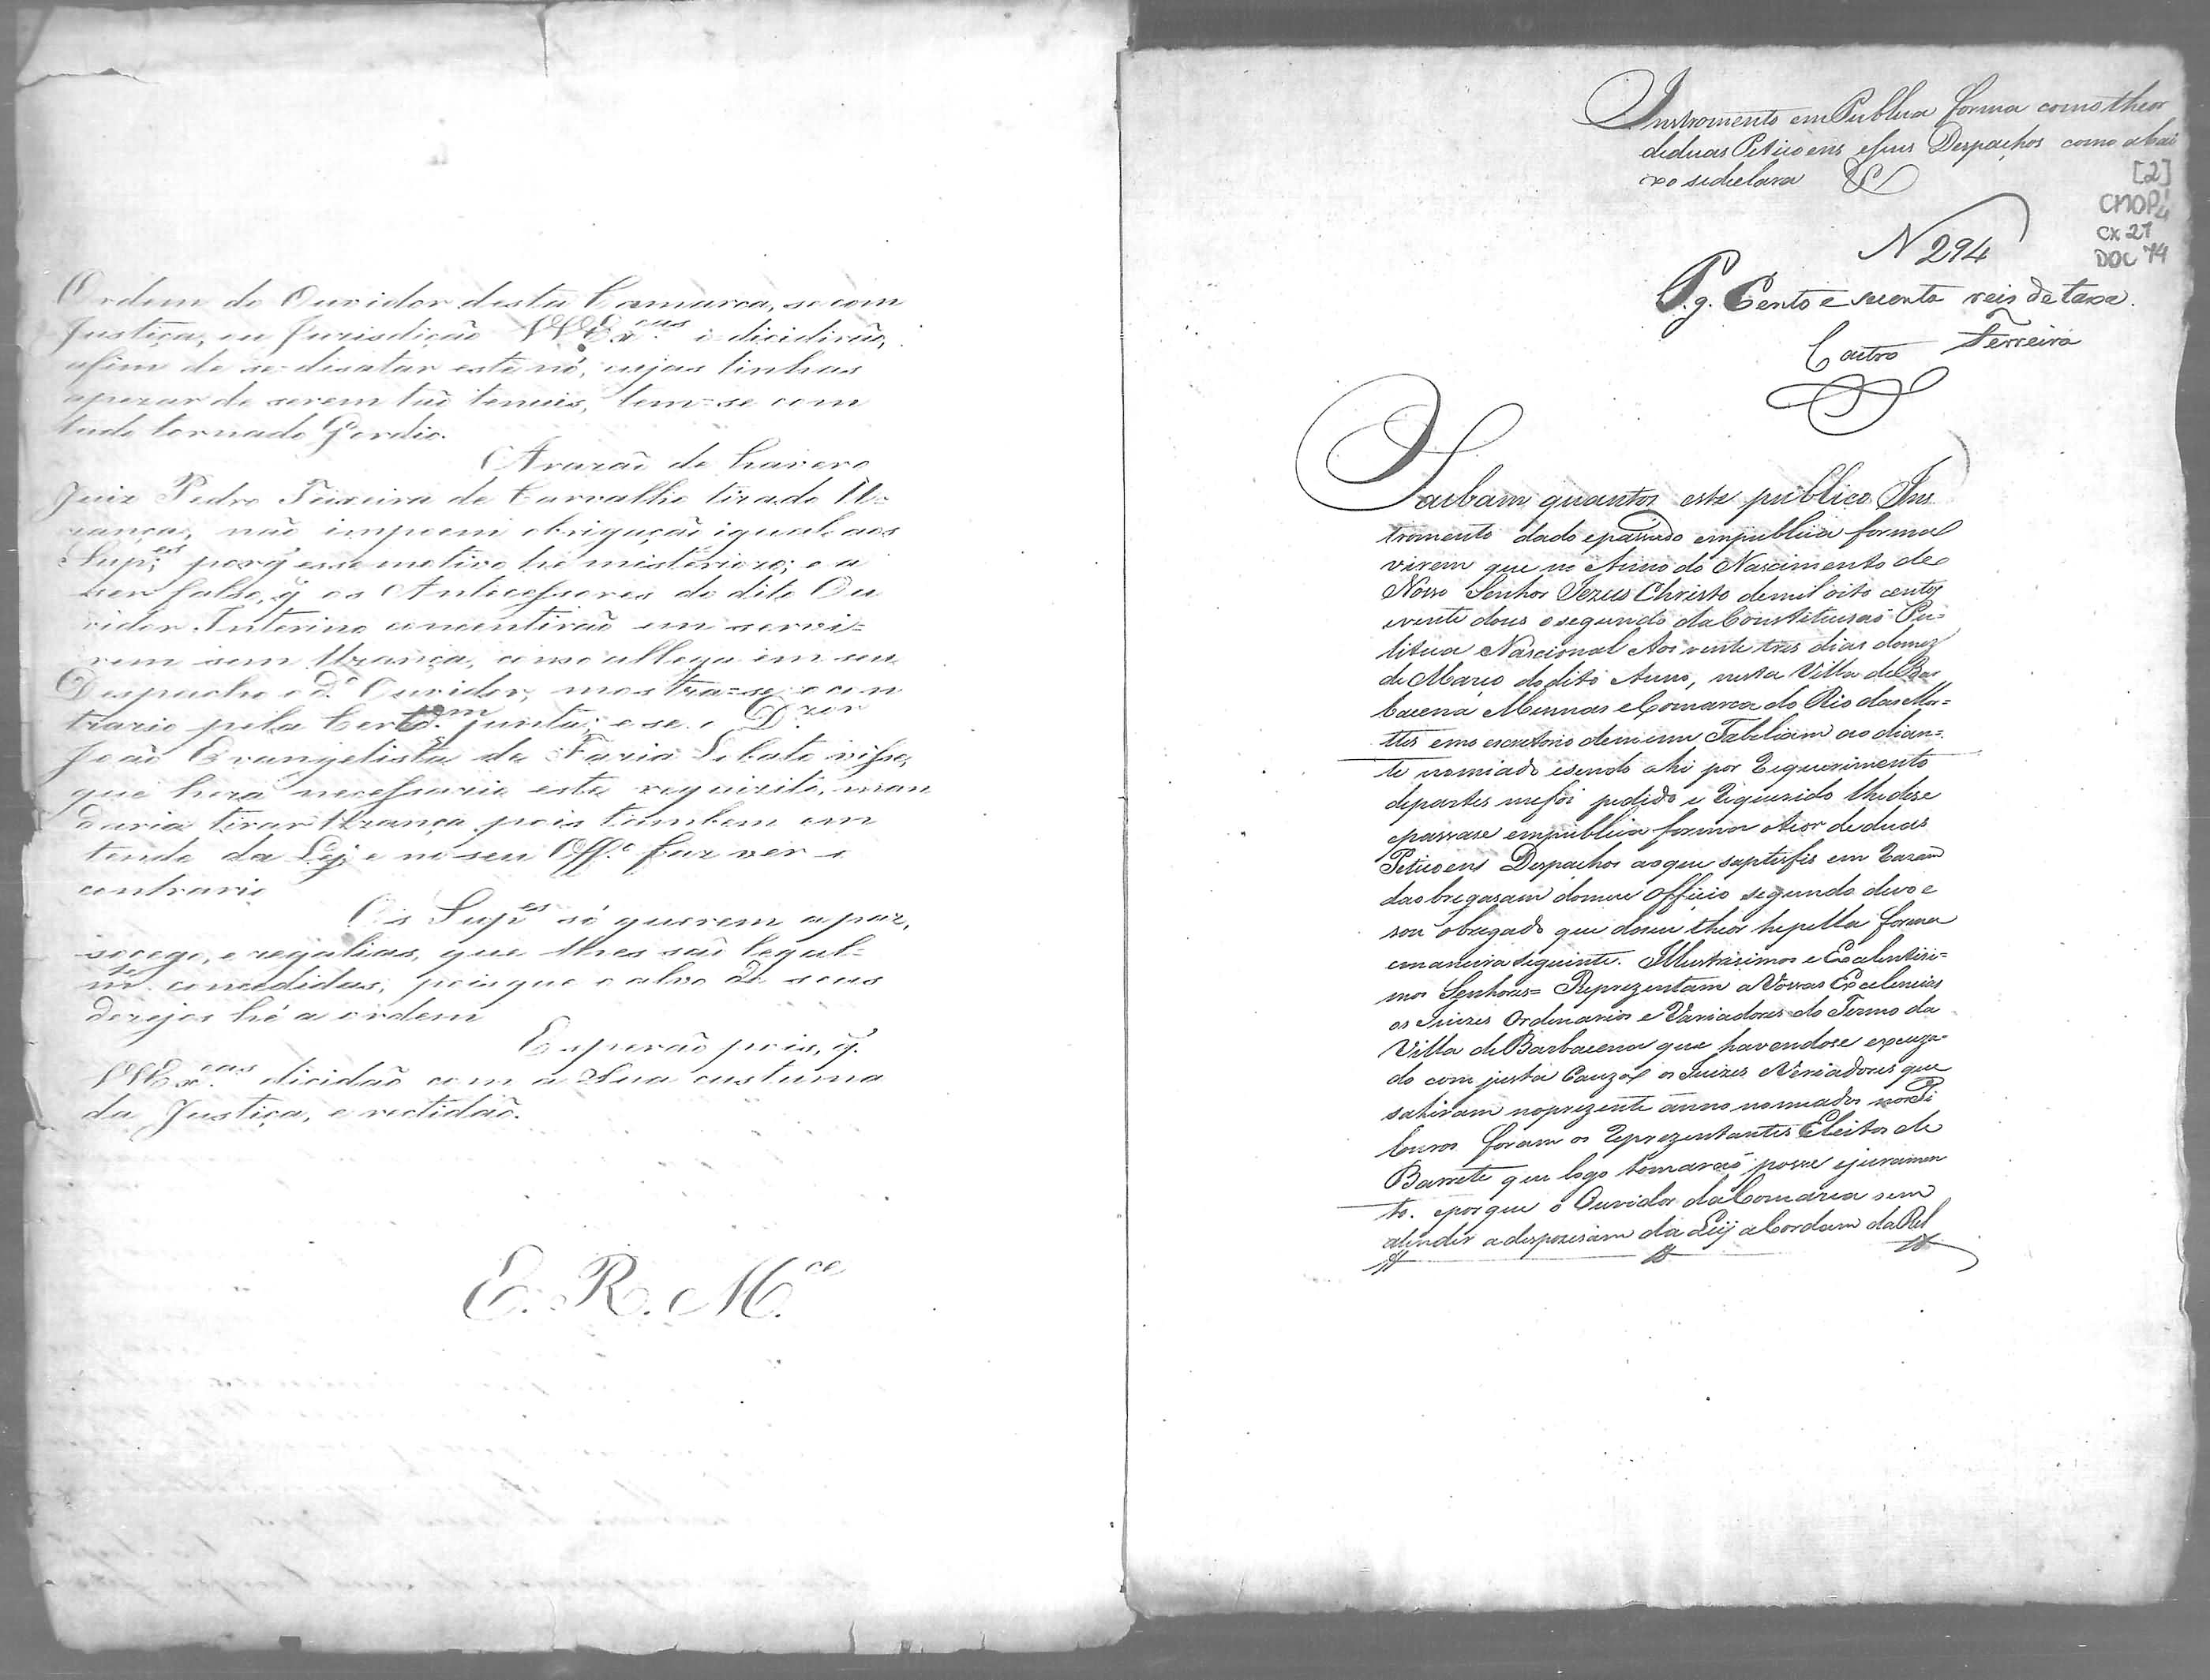 Ordem do Ouvidor desta Comarca, se com
Justiça, ou Jurisdição VVEx.cas o dicidirão,
afim de se disatar este nó, cujas linhas
apezar de serem tão tenues, tem=se com
tudo tornado Gordio.
A razão de haver o
Juiz Pedro Teixeira de Carvalho tirado U=
zança, não impoem obrigação igual aos
Sup.es porq̃ esse motivo hé misterioso; e a
ser falso, q̃ os Antecessores do dito Ou
vidor Interino concentirão em servi=
rem sem Uzança, como allega em seu
Despacho o d.º Ouvidor, mostra=se o con
trario pela Certd.m junta; e se o D.zor
João Evangelista de Faria Lobato visse,
que hera necessario este requizito, man
daria tirar Uzança, pois tambem en
tende da Ley, e no seu Off.º faz ver o
contrario
Os Sup.es só querem a paz,
socego, e regalias, que lhes são legal=
m.te concedidas; pois que o alvo de seus
dezejos hé a ordem
Esperão pois, q̃
VVEx.cas dicidão com a Sua custuma
da Justiça, e rectidão.
E. R. M.ce
Instromento em Publica forma como theor
deduas Peticoens eseus Despachos como abai
xo sedeclara
[2]
CMOP
CX 21
DOC 74
N 294
P.g. Cento e secenta reis de taxa.
Castro Ferreira
Saibam quantos este publico Ins
tromento dado epassado empublica forma
virem que no Anno do Nascimento de
Nosso Senhor Jezus Christo demil oito centos
evinte dous osegundo da Constituisaó Pu=
litica Nascional Aos vinte tres dias domez
de Março do dito Anno, nesta Villa de Bar
bacena Minnas eComarca do Rio das Mor=
tes emo escritorio demim Tabeliam ao dian=
te nomiado esendo ahi por Requerimento
departes mefoi pedido e Requerido lhedese
epassase empublica forma otior deduas
Peticoens Despachos aoque saptisfis em Razam
daobregasam domeu Officio segundo devo e
sou obregado que doseu theor hepella forma
emaneira siguinte. Illustrisimos e Excelentisi=
mos Senhores= Reprezentam a Vossas Excelencias
os Juizes Ordenarios e Variadores do Termo da
Villa de Barbacena que havendose excuza=
do com justa Cauza os Juizes Veriadores que
sahiram noprezente anno nomeados nos Pi
louros foram os Reprezentantes Eleitos de
Barrete que logo tomaraó posse ejuramen
to. eporque o Ouvidor da Comarca sem
atender adesposisam da Leij aCordam da Rel